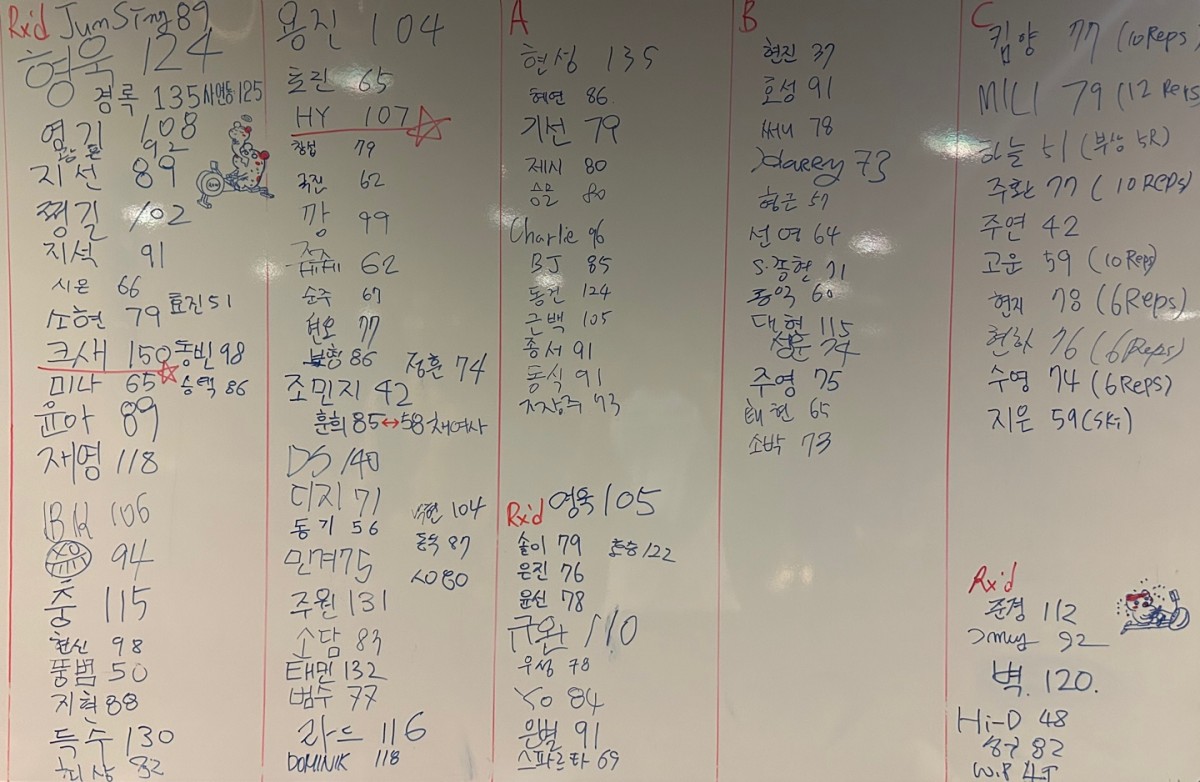 Rx'd JumSTng 89
형욱 124
경록 135 사연동 125
영기 108
92
지선 89
쩡길 102
지석 91
시온 66
효진 51
소현 79
크새 150 동빈 98
미나 65 승택 86
윤아 89
재영 118
BK 106
94
충 115
현신 98
뚱범 50
지현 88
득수 130
희상 82
용진 104
효린 65
HY 107
창섭 79
국진 62
깡 99
쭈 62
순주 67
현오 77
86 정훈 74
조민지 42
훈희 85 ↔ 58 채여사
DS 140
디지 71
동기 56
104
동욱 87
민겨 75
80
주원 131
소담 83
태민 132
범수 77
라드 116
DOMINIK 118
A
현성 135
혜연 86
기선 79
제시 80
승모 80
Charlie 96
BJ 85
동건 124
근백 105
종서 91
동식 91
73
Rx'd 영욱 105
솔이 79
122
은진 76
윤신 78
규완 110
우성 78
Yo 84
은별 91
스파르타 69
B
현진 37
효성 91
써니 78
Harrey 73
형근 57
선영 64
S.종현 71
60
대현 115
74
주영 75
태현 65
소박 73
C
킴양 77 (10 Reps)
MILI 79 (12 Reps
하늘 51 (부상 5R)
주환 77 (10 Reps)
주연 42
고운 59 (10 Rep)
현재 78 (6 Reps)
현하 76 (6 Reps)
수영 74 (6 Reps)
지은 59 (SKi)
Rx'd
준경 112
92
벽. 120.
Hi-D 48
82